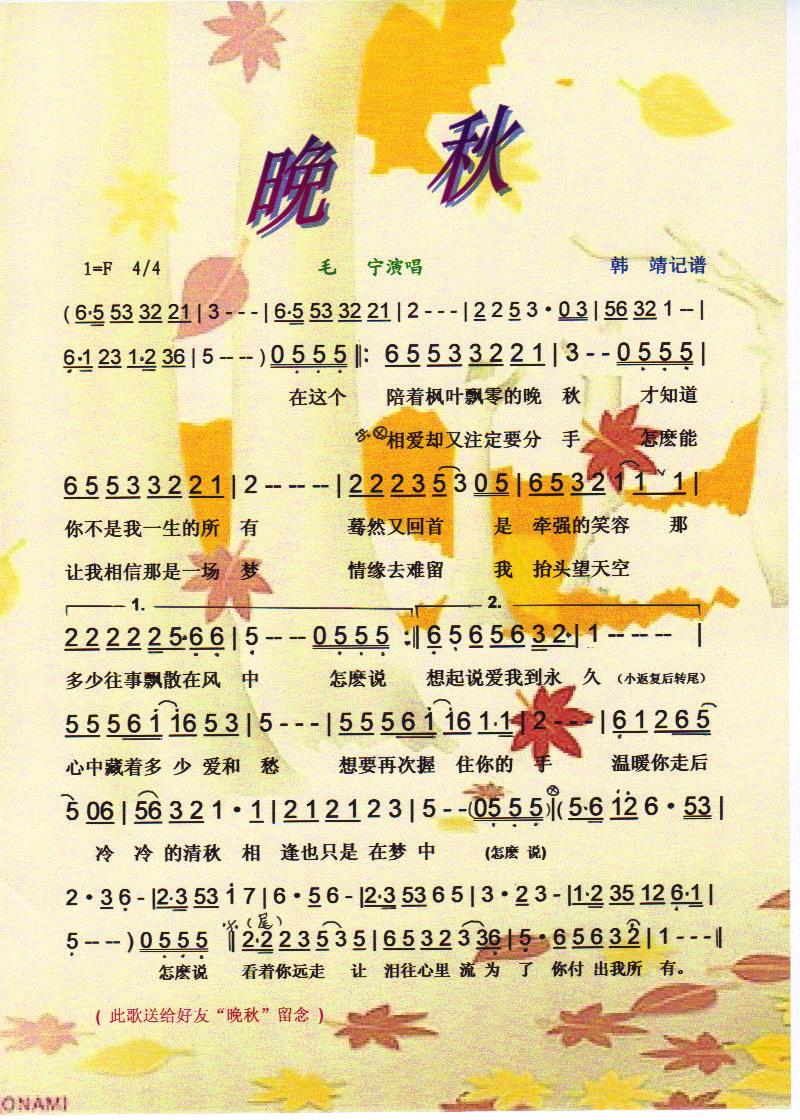 晚 秋
1=F 4/4 毛 宁演唱 韩 靖记谱
( 6·5 53 32 21 | 3 - - - | 6·5 53 32 21 | 2 - - - | 2 2 5 3 · 0 3 | 56 32 1 -- |
6·1 23 1·2 36 | 5 -- -- ) 0 5 5 5 ‖: 6 5 5 3 3 2 2 1 | 3 - - 0 5 5 5 |
在这个 陪着枫叶飘零的晚 秋 才知道
相爱却又注定要分 手 怎麽能
6 5 5 3 3 2 2 1 | 2 -- -- -- | 2 2 2 3 5 3 0 5 | 6 5 3 2 1 1 1 |
你不是我一生的所 有 蓦然又回首 是 牵强的笑容 那
让我相信那是一场 梦 情缘去难留 我 抬头望天空
1. 2.
2 2 2 2 2 5·6 6 | 5 -- -- 0 5 5 5 :‖ 6 5 6 5 6 3 2· | 1 -- -- -- |
多少往事飘散在风 中 怎麽说 想起说爱我到永 久 (小返复后转尾)
5 5 5 6 1 16 5 3 | 5 - - - | 5 5 5 6 1 16 1·1 | 2 - - - | 6 1 2 6 5
心中藏着多 少 爱和 愁 想要再次握 住你的 手 温暖你走后
5 06 | 56 3 2 1 · 1 | 2 1 2 1 2 3 | 5 - - (05 5 5) ‖ ( 5·6 12 6 · 53 |
冷 冷 的清秋 相 逢也只是 在梦 中 (怎麽 说)
2 · 3 6 - | 2·3 53 1 7 | 6 · 5 6 - | 2·3 53 6 5 | 3 · 2 3 - | 1·2 35 12 6·1 |
(尾)
5 -- -- ) 0 5 5 5 ‖ 2·2 2 3 5 3 5 | 6 5 3 2 3 36 | 5 · 6 5 6 3 2 | 1 - - - ‖
怎麽说 看着你远走 让 泪往心里 流 为 了 你付 出我所 有。
( 此歌送给好友“晚秋”留念 )
ONAMI